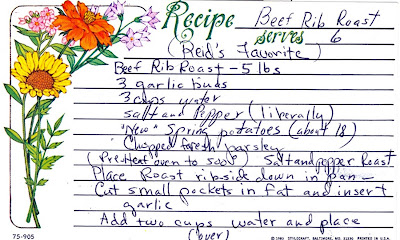 Recipe Beef Rib Roast
serves 6
(Reid's Favorite)
Beef Rib Roast - 5 lbs
3 garlic buds
3 cups water
salt and Pepper (liberally)
"New" Spring potatoes (about 18)
Chopped fresh parsley
(Pre-Heat oven to 500°) Salt and pepper Roast
Place Roast rib side down in pan -
Cut small pockets in fat and insert
garlic
Add two cups water and place
(over)
75-905 © 1980 STYLECRAFT, BALTIMORE, MD. 21230 PRINTED IN U.S.A.